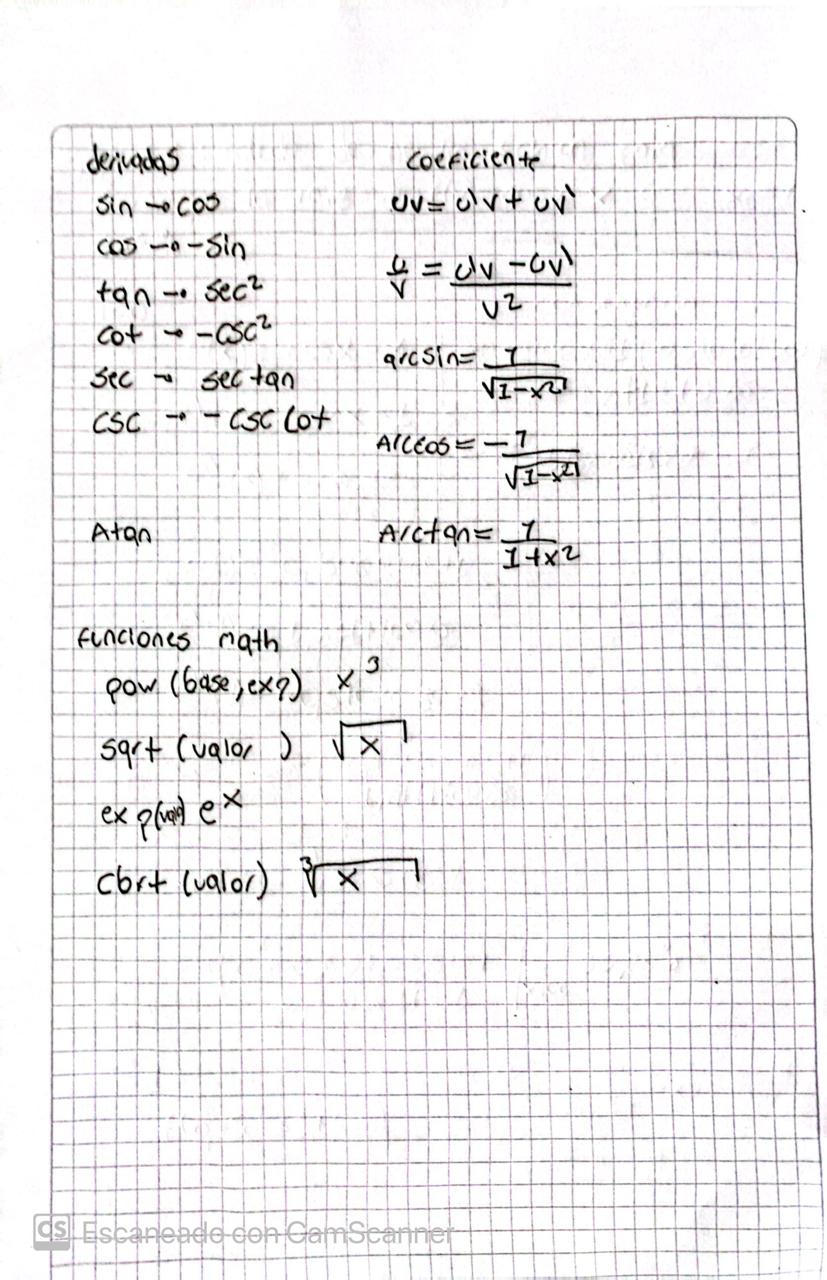 derivadas
sin → cos
cos → -Sin
tan → sec²
cot → -csc²
sec → sec tan
csc → - csc Cot
Atan
coeficiente
uv = u'v + uv'
u/v = u'v - uv' / v²
arcsin = 1/√1-x²
Arccos = -1/√1-x²
Arctan = 1/1+x²
funciones math
pow (base, exp) x³
sqrt (valor ) √x
exp(valor) eˣ
cbrt (valor) ³√x
CS Escaneado con CamScanner